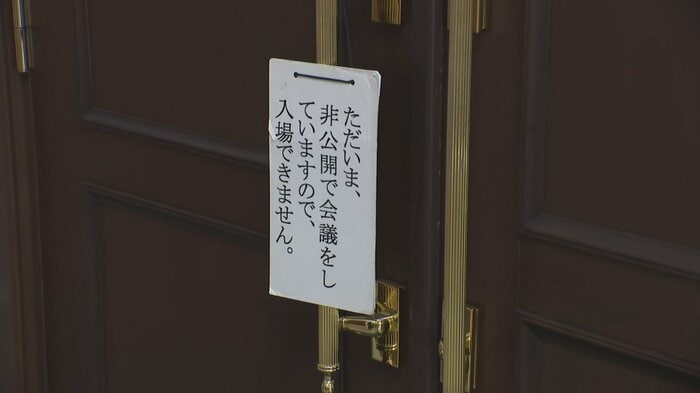 ただいま、
非公開で会議をし
ていますので、
入場できません。